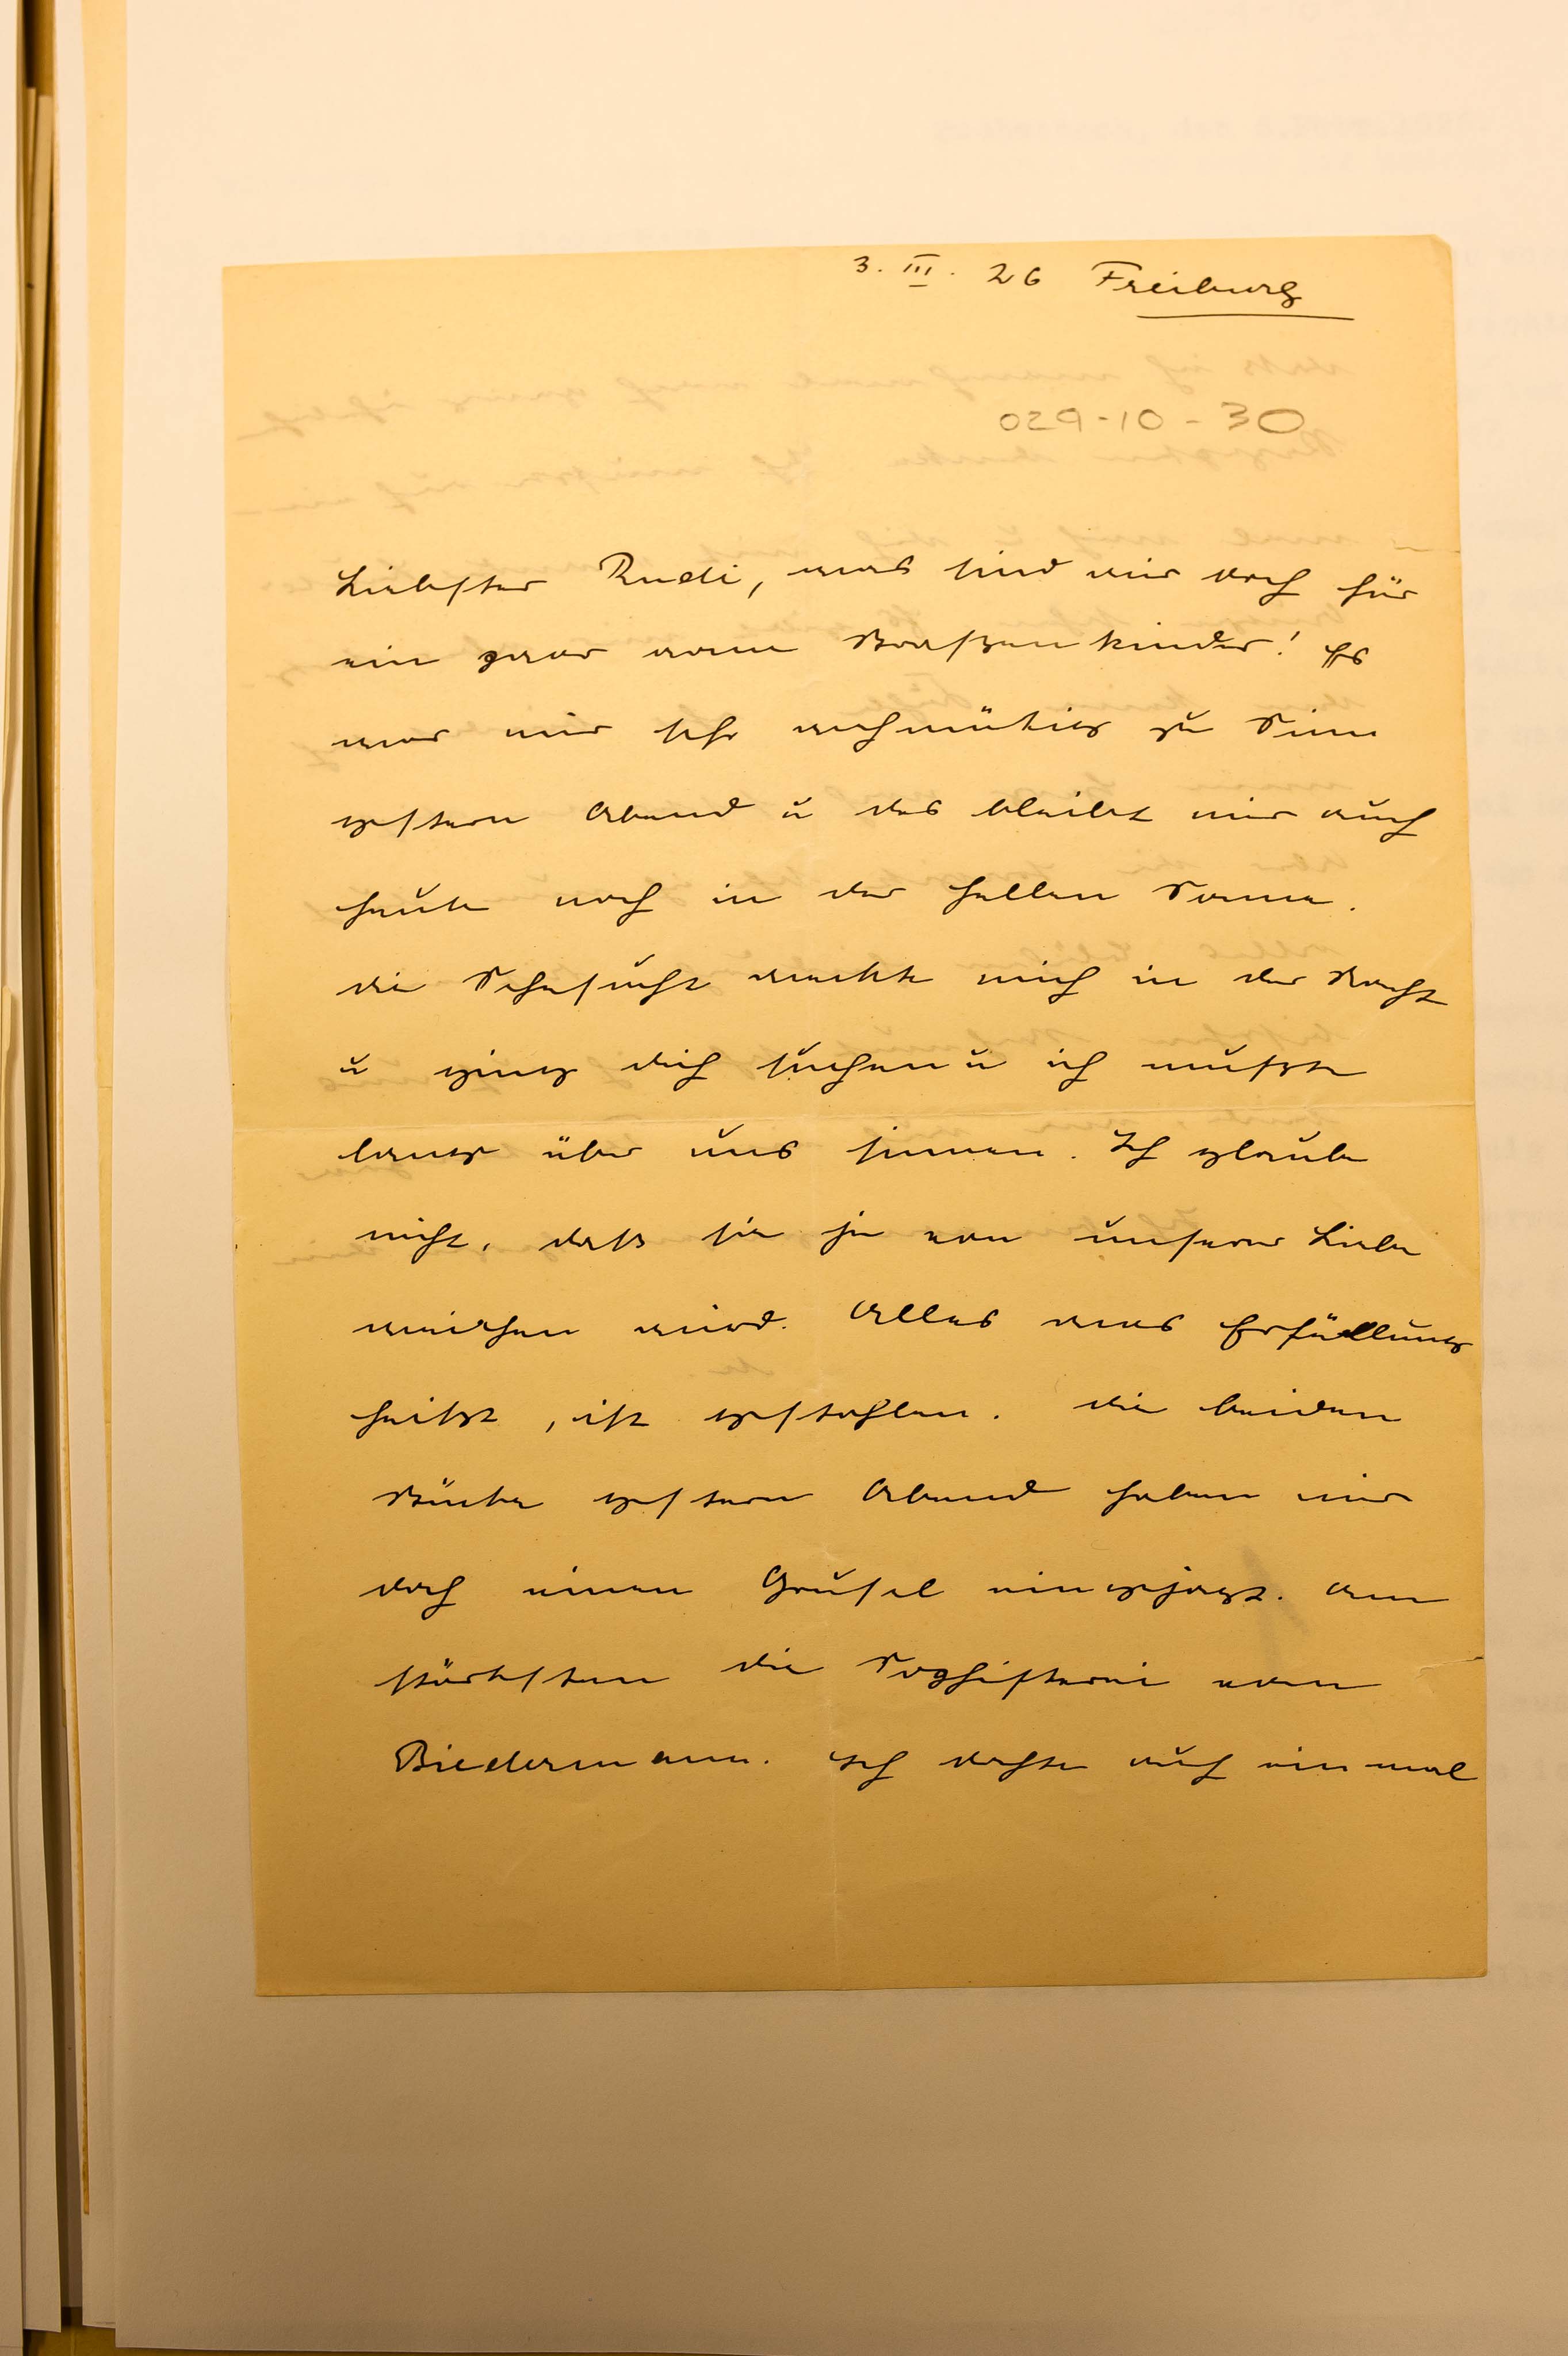 3. III. 26 Freiburg
029-10-30
Liebster Rudi, was sind wir doch für
ein paar arme Straßenkinder! Es
war mir sehr wehmütig zu Sinn
gestern Abend u das bleibt mir auch
heute noch in der hellen Sonne.
die Sehnsucht weckte mich in der Nacht
u ging dich suchen u ich mußte
lang über uns sinnen. Ich glaube
nicht, daß sie je von unserer Liebe
weichen wird. Alles was Erfüllung
heißt, ist gestohlen. die beiden
Stücke gestern Abend haben mir
doch einen Grusel eingejagt. am
stärksten die Sophisterei vom
Biedermann. Ich dachte auf einmal